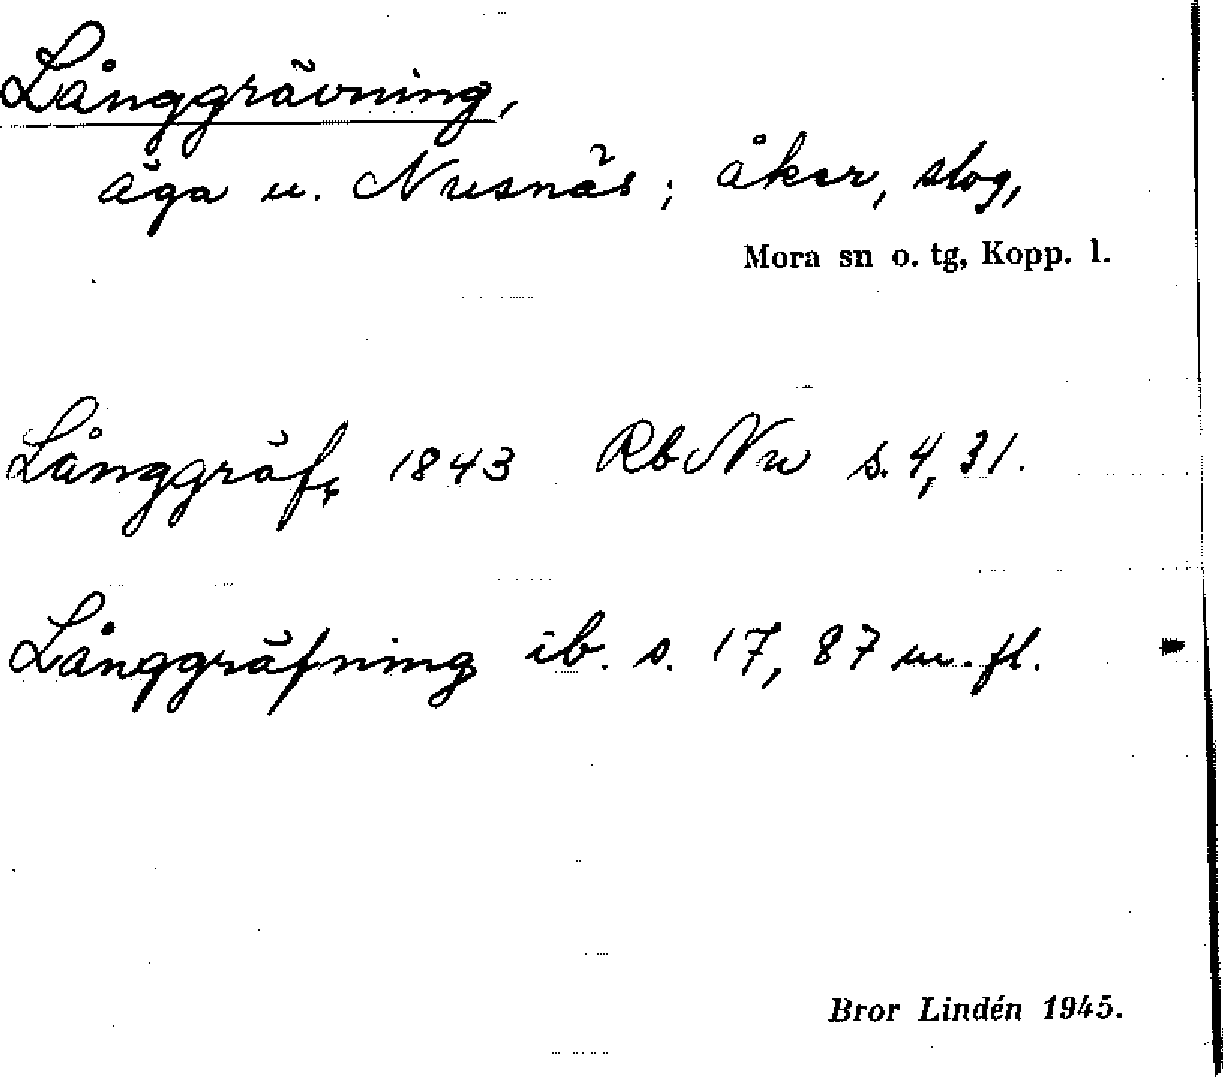 Långgrävning,
äga u. Nusnäs; åker, slog,
Mora sn o. tg, Kopp. l.
Långgräf, 1843 Rb Nu s. 4, 31.
Långgräfning ib. s. 17, 87 m. fl.
Bror Lindén 1945.